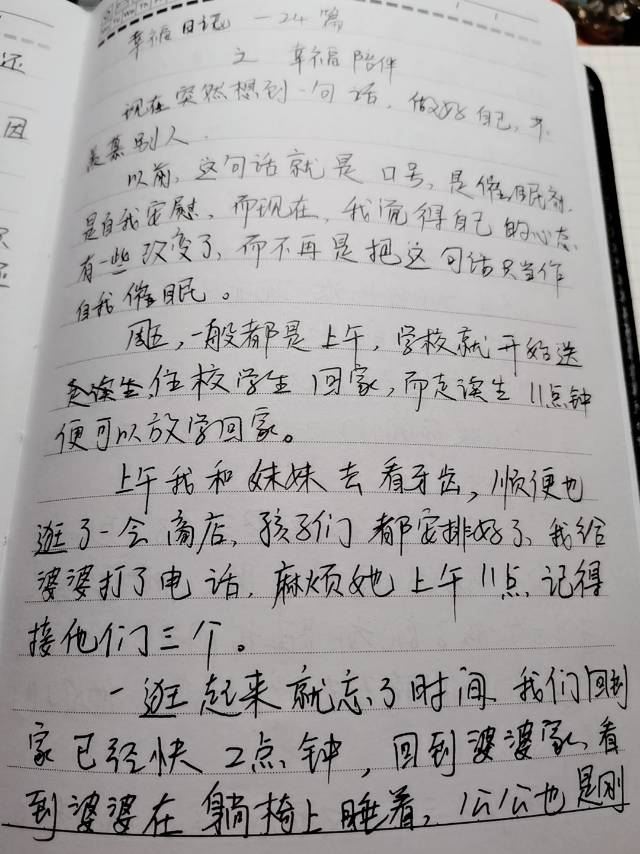 幸福日记 一24篇
之 幸福陪伴
现在突然想到一句话，做好自己，不
羡慕别人.
以前，这句话就是口号，是催眠剂.
是自我安慰，而现在，我觉得自己的心态
有一些改变了，而不再是把这句话只当作
自我催眠。
周五，一般都是上午，学校就开始送
走读生，住校学生回家，而走读生11点钟
便可以放学回家。
上午我和妹妹去看牙齿，顺便也
逛了一会商店，孩子们都安排好了，我给
婆婆打了电话，麻烦她上午11点记得
接他们三个。
一逛起来就忘了时间，我们回到
家已经快2点钟，回到婆婆家，看
到婆婆在躺椅上睡着，公公也是刚
还
因